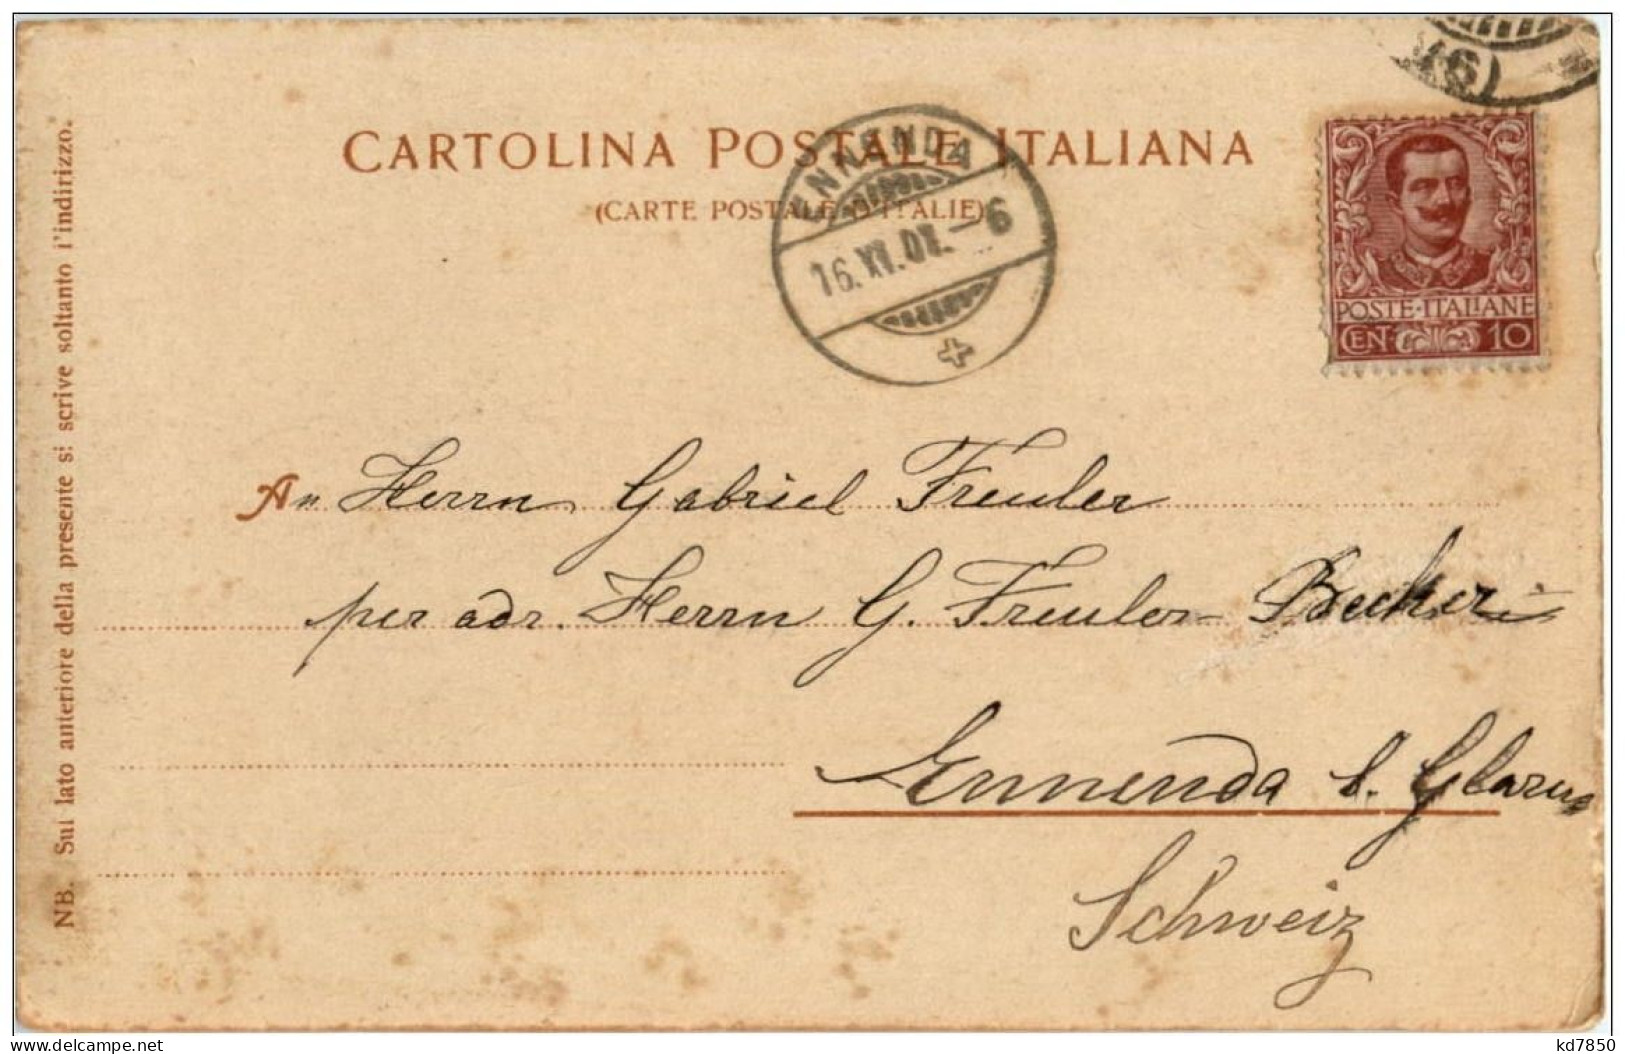 CARTOLINA POSTALE ITALIANA
(CARTE POSTALE D'ITALIE)
ENNENDA
16.XI.01.–6
POSTE·ITALIANE
CEN. 10
An Herrn Gabriel Freuler
per adr. Herrn G. Freuler-Becker
Ennenda b. Glarus
Schweiz
NB. Sul lato anteriore della presente si scrive soltanto l'indirizzo.
www.delcampe.net
kd7850